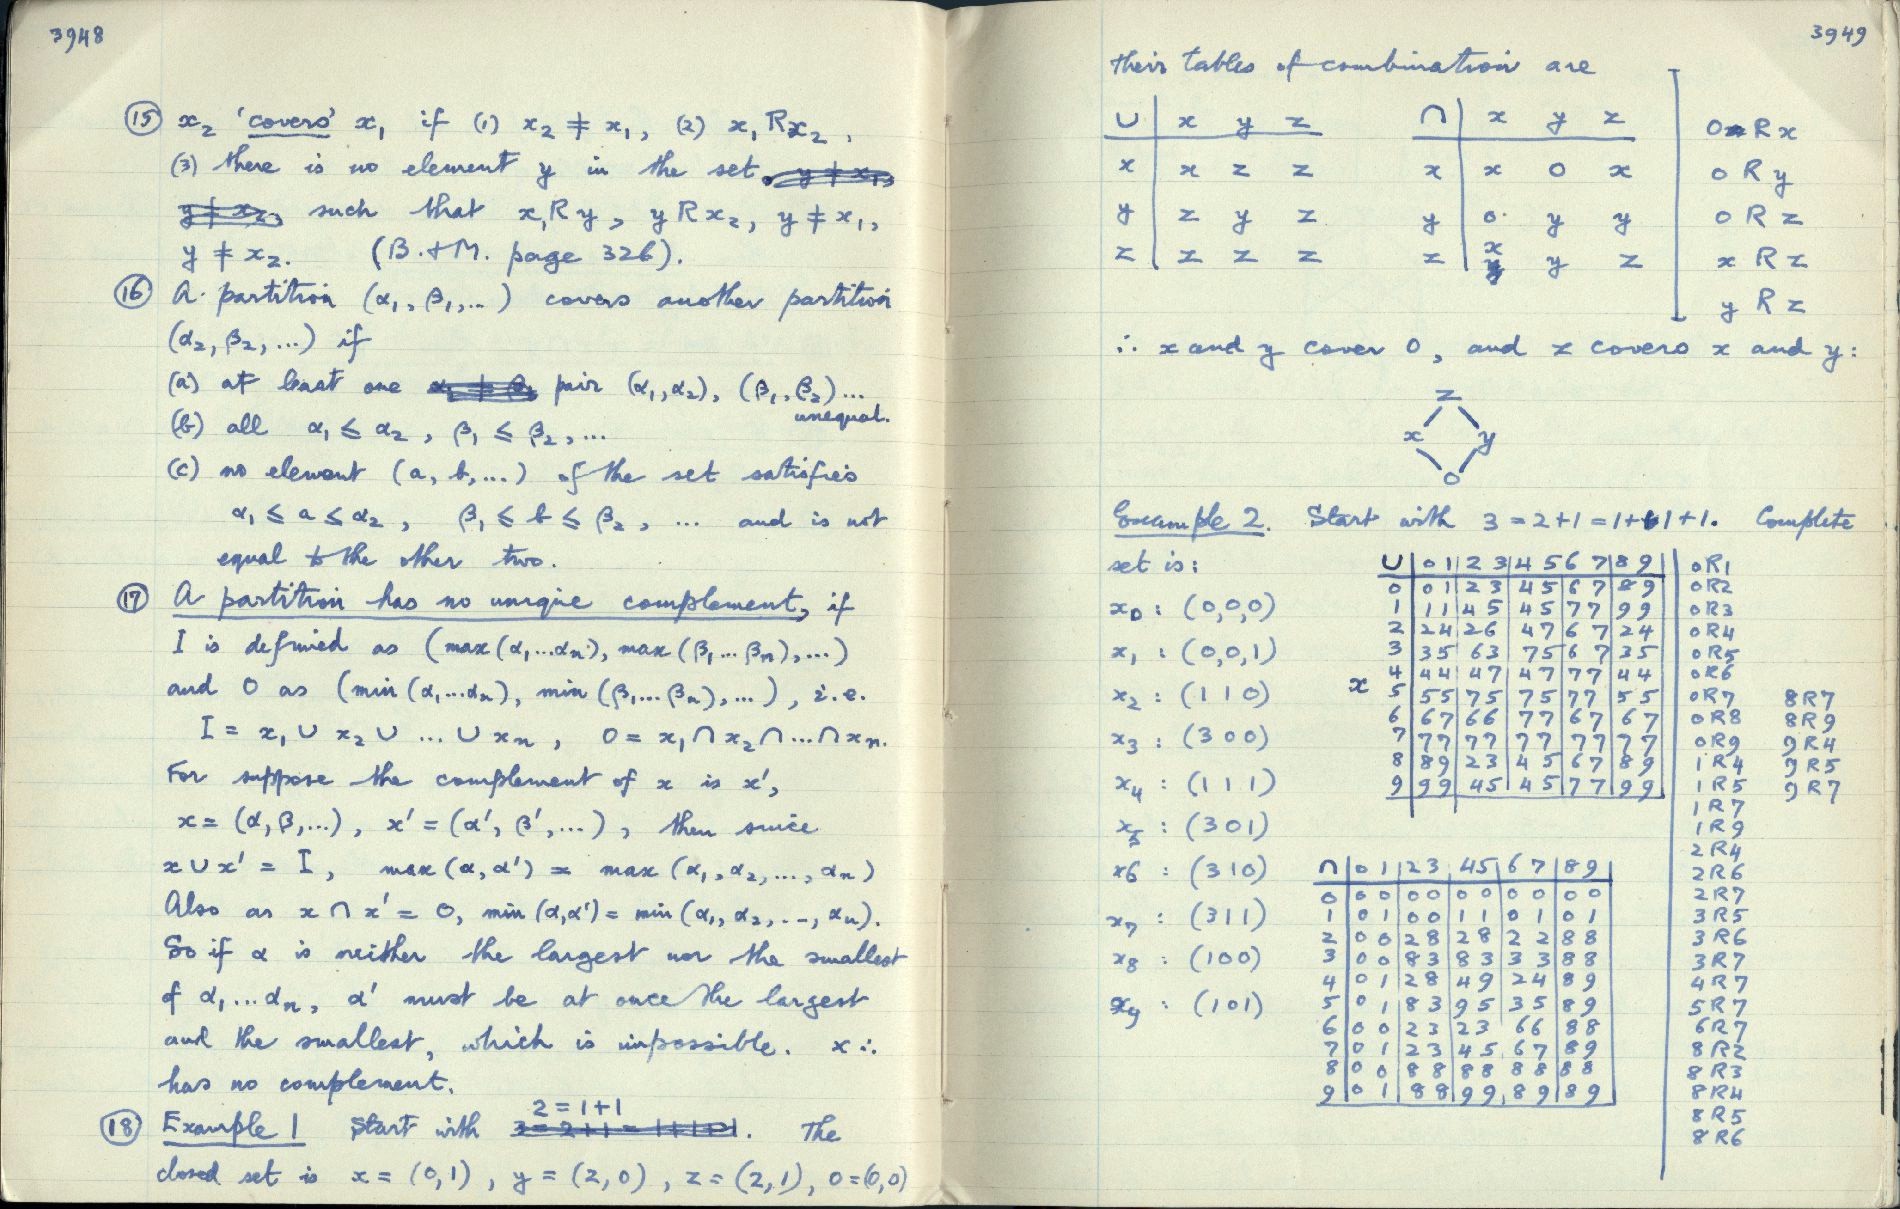 3948
⑮ x₂ 'covers' x₁ if (1) x₂ ≠ x₁, (2) x₁Rx₂,
(3) there is no element y in the set
such that x₁Ry, yRx₂, y ≠ x₁,
y ≠ x₂. (B.+M. page 326).
⑯ A partition (α₁, β₁, ...) covers another partition
(α₂, β₂, ...) if
(a) at least one pair (α₁, α₂), (β₁, β₂) ...
unequal.
(b) all α₁ ≤ α₂, β₁ ≤ β₂, ...
(c) no element (a, b, ...) of the set satisfies
α₁ ≤ a ≤ α₂, β₁ ≤ b ≤ β₂, ... and is not
equal to the other two.
⑰ A partition has no unique complement, if
I is defined as (max(α₁...αn), max(β₁...βn), ...)
and 0 as (min(α₁...αn), min(β₁...βn), ...), i.e.
I = x₁ ∪ x₂ ∪ ... ∪ xn, 0 = x₁ ∩ x₂ ∩ ... ∩ xn.
For suppose the complement of x is x',
x = (α, β, ...), x' = (α', β', ...), then since
x ∪ x' = I, max(α, α') = max(α₁, α₂, ..., αn)
Also as x ∩ x' = 0, min(α, α') = min(α₁, α₂, ..., αn).
So if α is neither the largest nor the smallest
of α₁...αn, α' must be at once the largest
and the smallest, which is impossible. x ∴
has no complement.
2 = 1+1
⑱ Example 1 Start with 3 = 2+1 = 1+1+1. The
closed set is x = (0,1), y = (2,0), z = (2,1), 0 = (0,0)
3949
their tables of combination are
∪ x y z
x x z z
y z y z
z z z z
∩ x y z
x x 0 x
y 0 y y
z x y z
0 R x
0 R y
0 R z
x R z
y R z
∴ x and y cover 0, and z covers x and y:
z
x y
0
Example 2. Start with 3 = 2+1 = 1+1+1. Complete
set is:
x₀ : (0,0,0)
x₁ : (0,0,1)
x₂ : (1 1 0)
x₃ : (3 0 0)
x₄ : (1 1 1)
x₅ : (3 0 1)
x₆ : (3 1 0)
x₇ : (3 1 1)
x₈ : (1 0 0)
x₉ : (1 0 1)
∪ 0 1 2 3 4 5 6 7 8 9
0 0 1 2 3 4 5 6 7 8 9
1 1 1 4 5 4 5 7 7 9 9
2 2 4 2 6 4 7 6 7 2 4
3 3 5 6 3 7 5 6 7 3 5
4 4 4 4 7 4 7 7 7 4 4
x 5 5 5 7 5 7 5 7 7 5 5
6 6 7 6 6 7 7 6 7 6 7
7 7 7 7 7 7 7 7 7 7 7
8 8 9 2 3 4 5 6 7 8 9
9 9 9 4 5 4 5 7 7 9 9
∩ 0 1 2 3 4 5 6 7 8 9
0 0 0 0 0 0 0 0 0 0 0
1 0 1 0 0 1 1 0 1 0 1
2 0 0 2 8 2 8 2 2 8 8
3 0 0 8 3 8 3 3 3 8 8
4 0 1 2 8 4 9 2 4 8 9
5 0 1 8 3 9 5 3 5 8 9
6 0 0 2 3 2 3 6 6 8 8
7 0 1 2 3 4 5 6 7 8 9
8 0 0 8 8 8 8 8 8 8 8
9 0 1 8 8 9 9 8 9 8 9
0R1
0R2
0R3
0R4
0R5
0R6
0R7
0R8
0R9
1R4
1R5
1R7
1R9
2R4
2R6
2R7
3R5
3R6
3R7
4R7
5R7
6R7
8R2
8R3
8R4
8R5
8R6
8R7
8R9
9R4
9R5
9R7